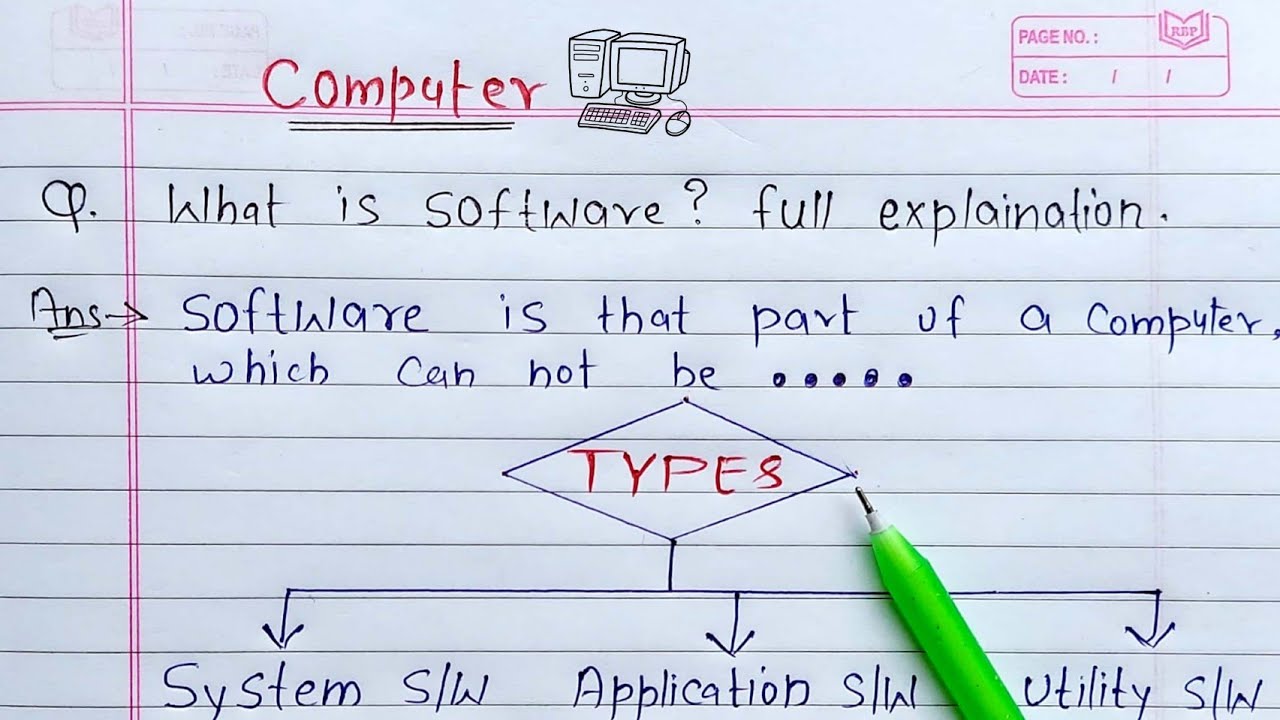 PAGE NO.:
RBP
DATE: / /
Computer
Q. What is software? full explaination.
Ans→ Software is that part of a computer,
which can not be .....
TYPES
System S/W Application S/W Utility S/W